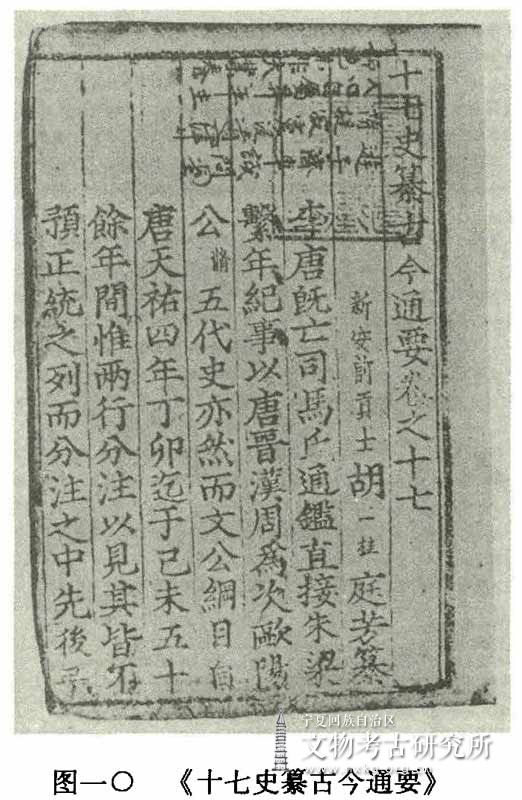 十七史纂古今通要卷之十七
新安前貢士胡一桂庭芳纂
李唐旣亡司馬氏通鑑直接朱梁
繫年紀事以唐晉漢周爲次歐陽
公脩五代史亦然而文公綱目自
唐天祐四年丁卯迄于己未五十
餘年間惟兩行分注以見其皆不
預正統之列而分注之中先後
宁夏回族自治区
文物考古研究所
图一〇 《十七史纂古今通要》